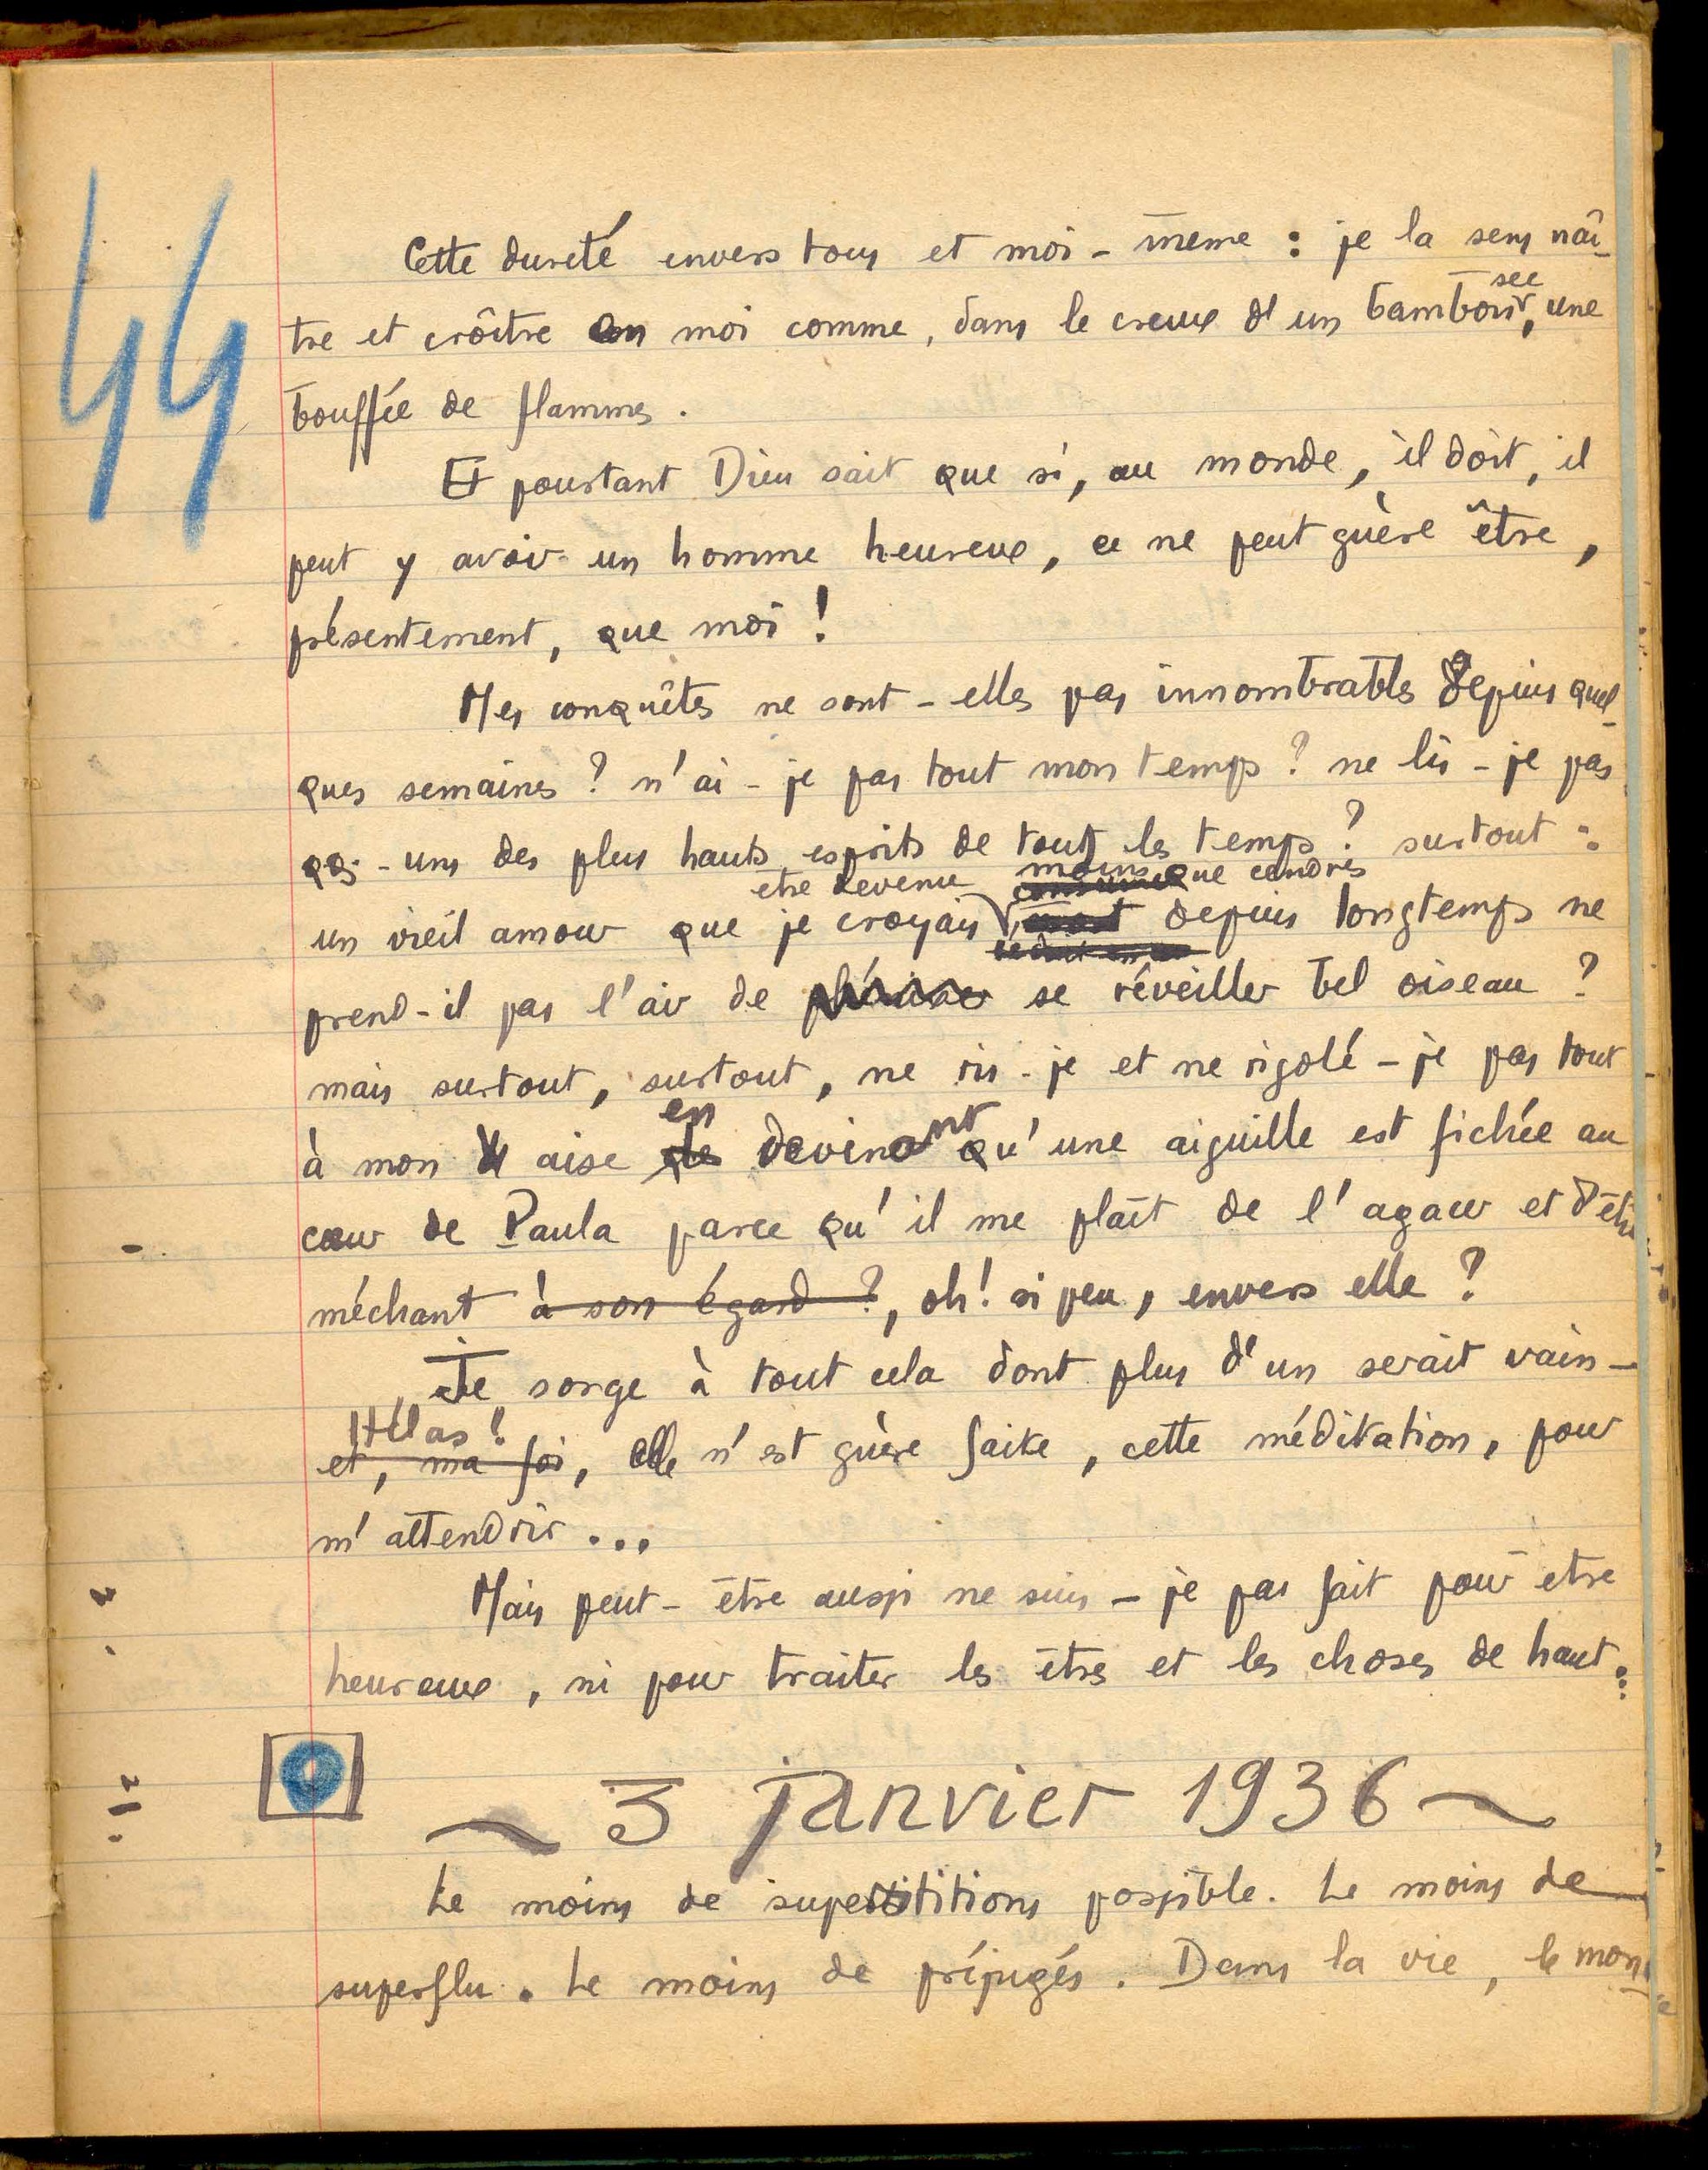 44
Cette dureté envers tous et moi-même : je la sens naî-
tre et croître en moi comme, dans le creux d'un bambou sec, une
bouffée de flammes.
Et pourtant Dieu sait que si, au monde, il doit, il
peut y avoir un homme heureux, ce ne peut guère être,
présentement, que moi !
Mes conquêtes ne sont-elles pas innombrables depuis quel-
ques semaines ? n'ai-je pas tout mon temps ? ne lis-je pas
qqs-uns des plus hauts esprits de tous les temps ? surtout :
être devenu moins que cendres
un vieil amour que je croyais depuis longtemps ne
prend-il pas l'air de se réveiller bel oiseau ?
mais surtout, surtout, ne ris-je et ne rigolé-je pas tout
à mon aise en devinant qu'une aiguille est fichée au
cœur de Paula parce qu'il me plaît de l'agacer et d'être
méchant à son égard ?, oh ! si peu, envers elle ?
Je songe à tout cela dont plus d'un serait vain -
Hélas !
et, ma foi, elle n'est guère faite, cette méditation, pour
m'attendrir...
Mais peut-être aussi ne suis-je pas fait pour être
heureux, ni pour traiter les êtres et les choses de haut...
~ 3 janvier 1936 ~
Le moins de superstitions possible. Le moins de
superflu. Le moins de préjugés. Dans la vie, le mon